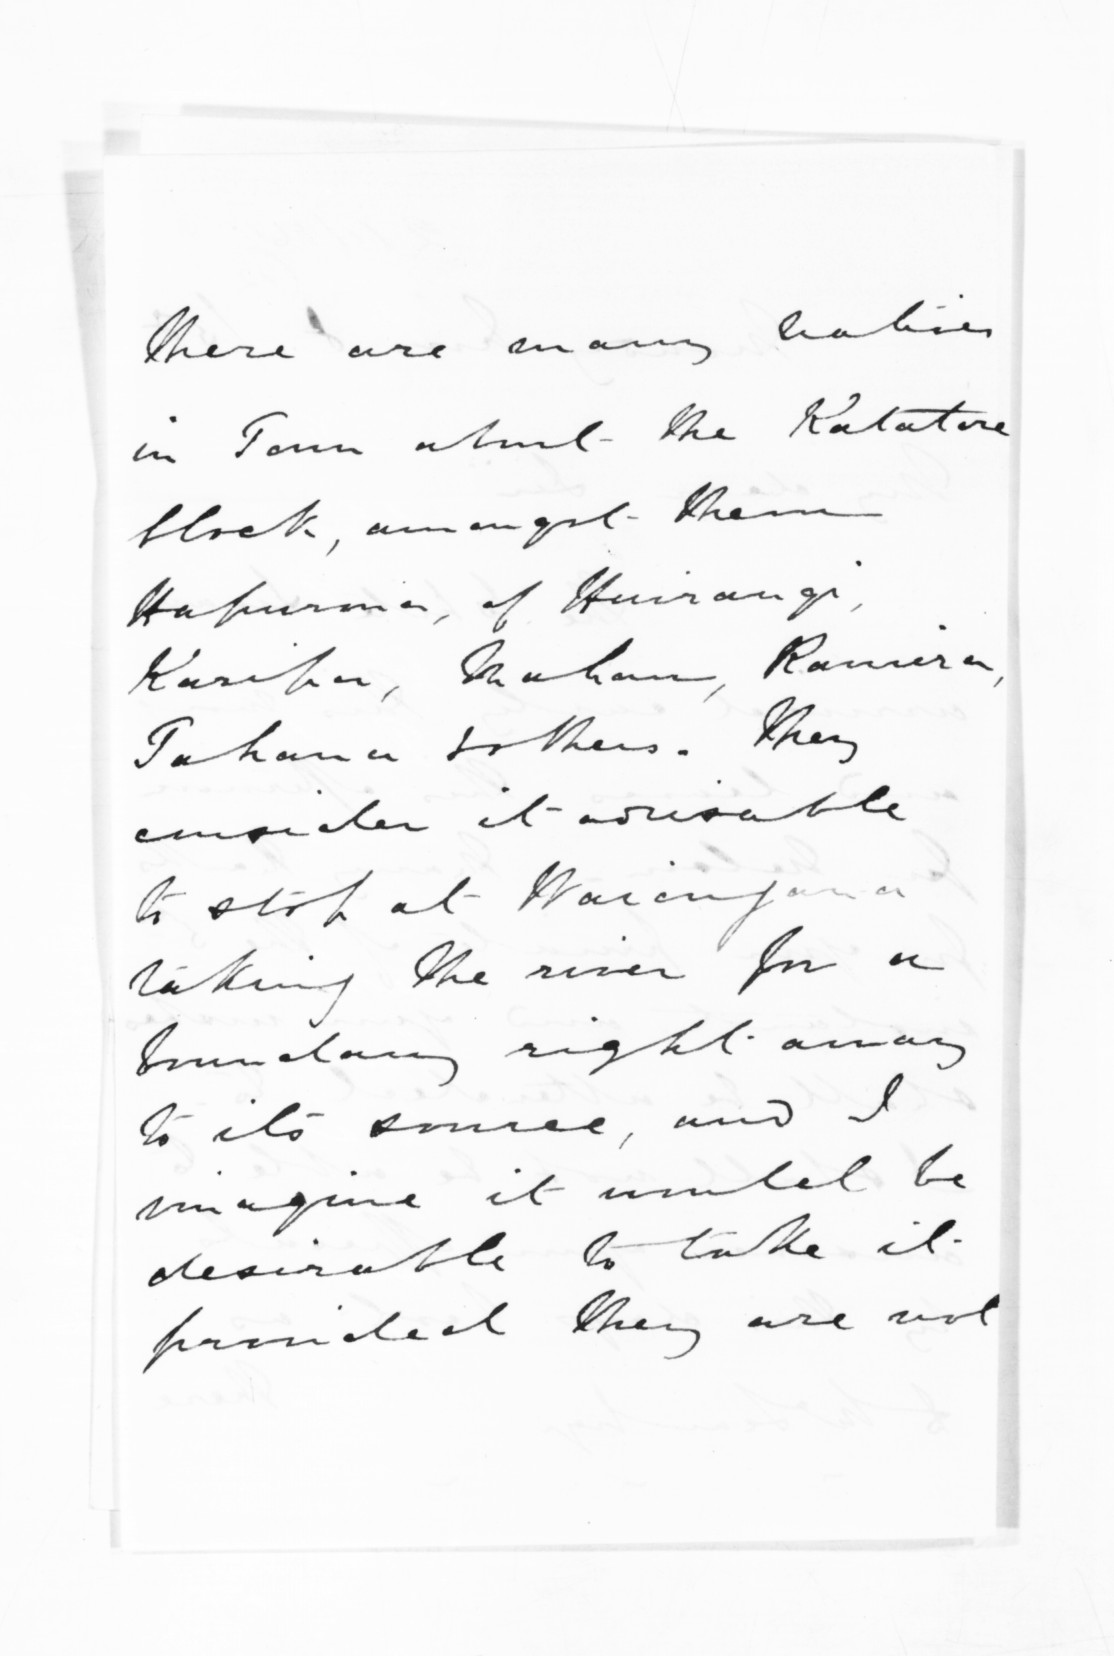 There are many natives
in Town about the Katatore
block, amongst them
Hapurona, of Huirangi,
Karipa, Mahau, Ramira,
Tahana & others. They
consider it advisable
to stop at Waiongana
taking the river for a
boundary right away
to its source, and I
imagine it would be
desirable to take it
provided they are not